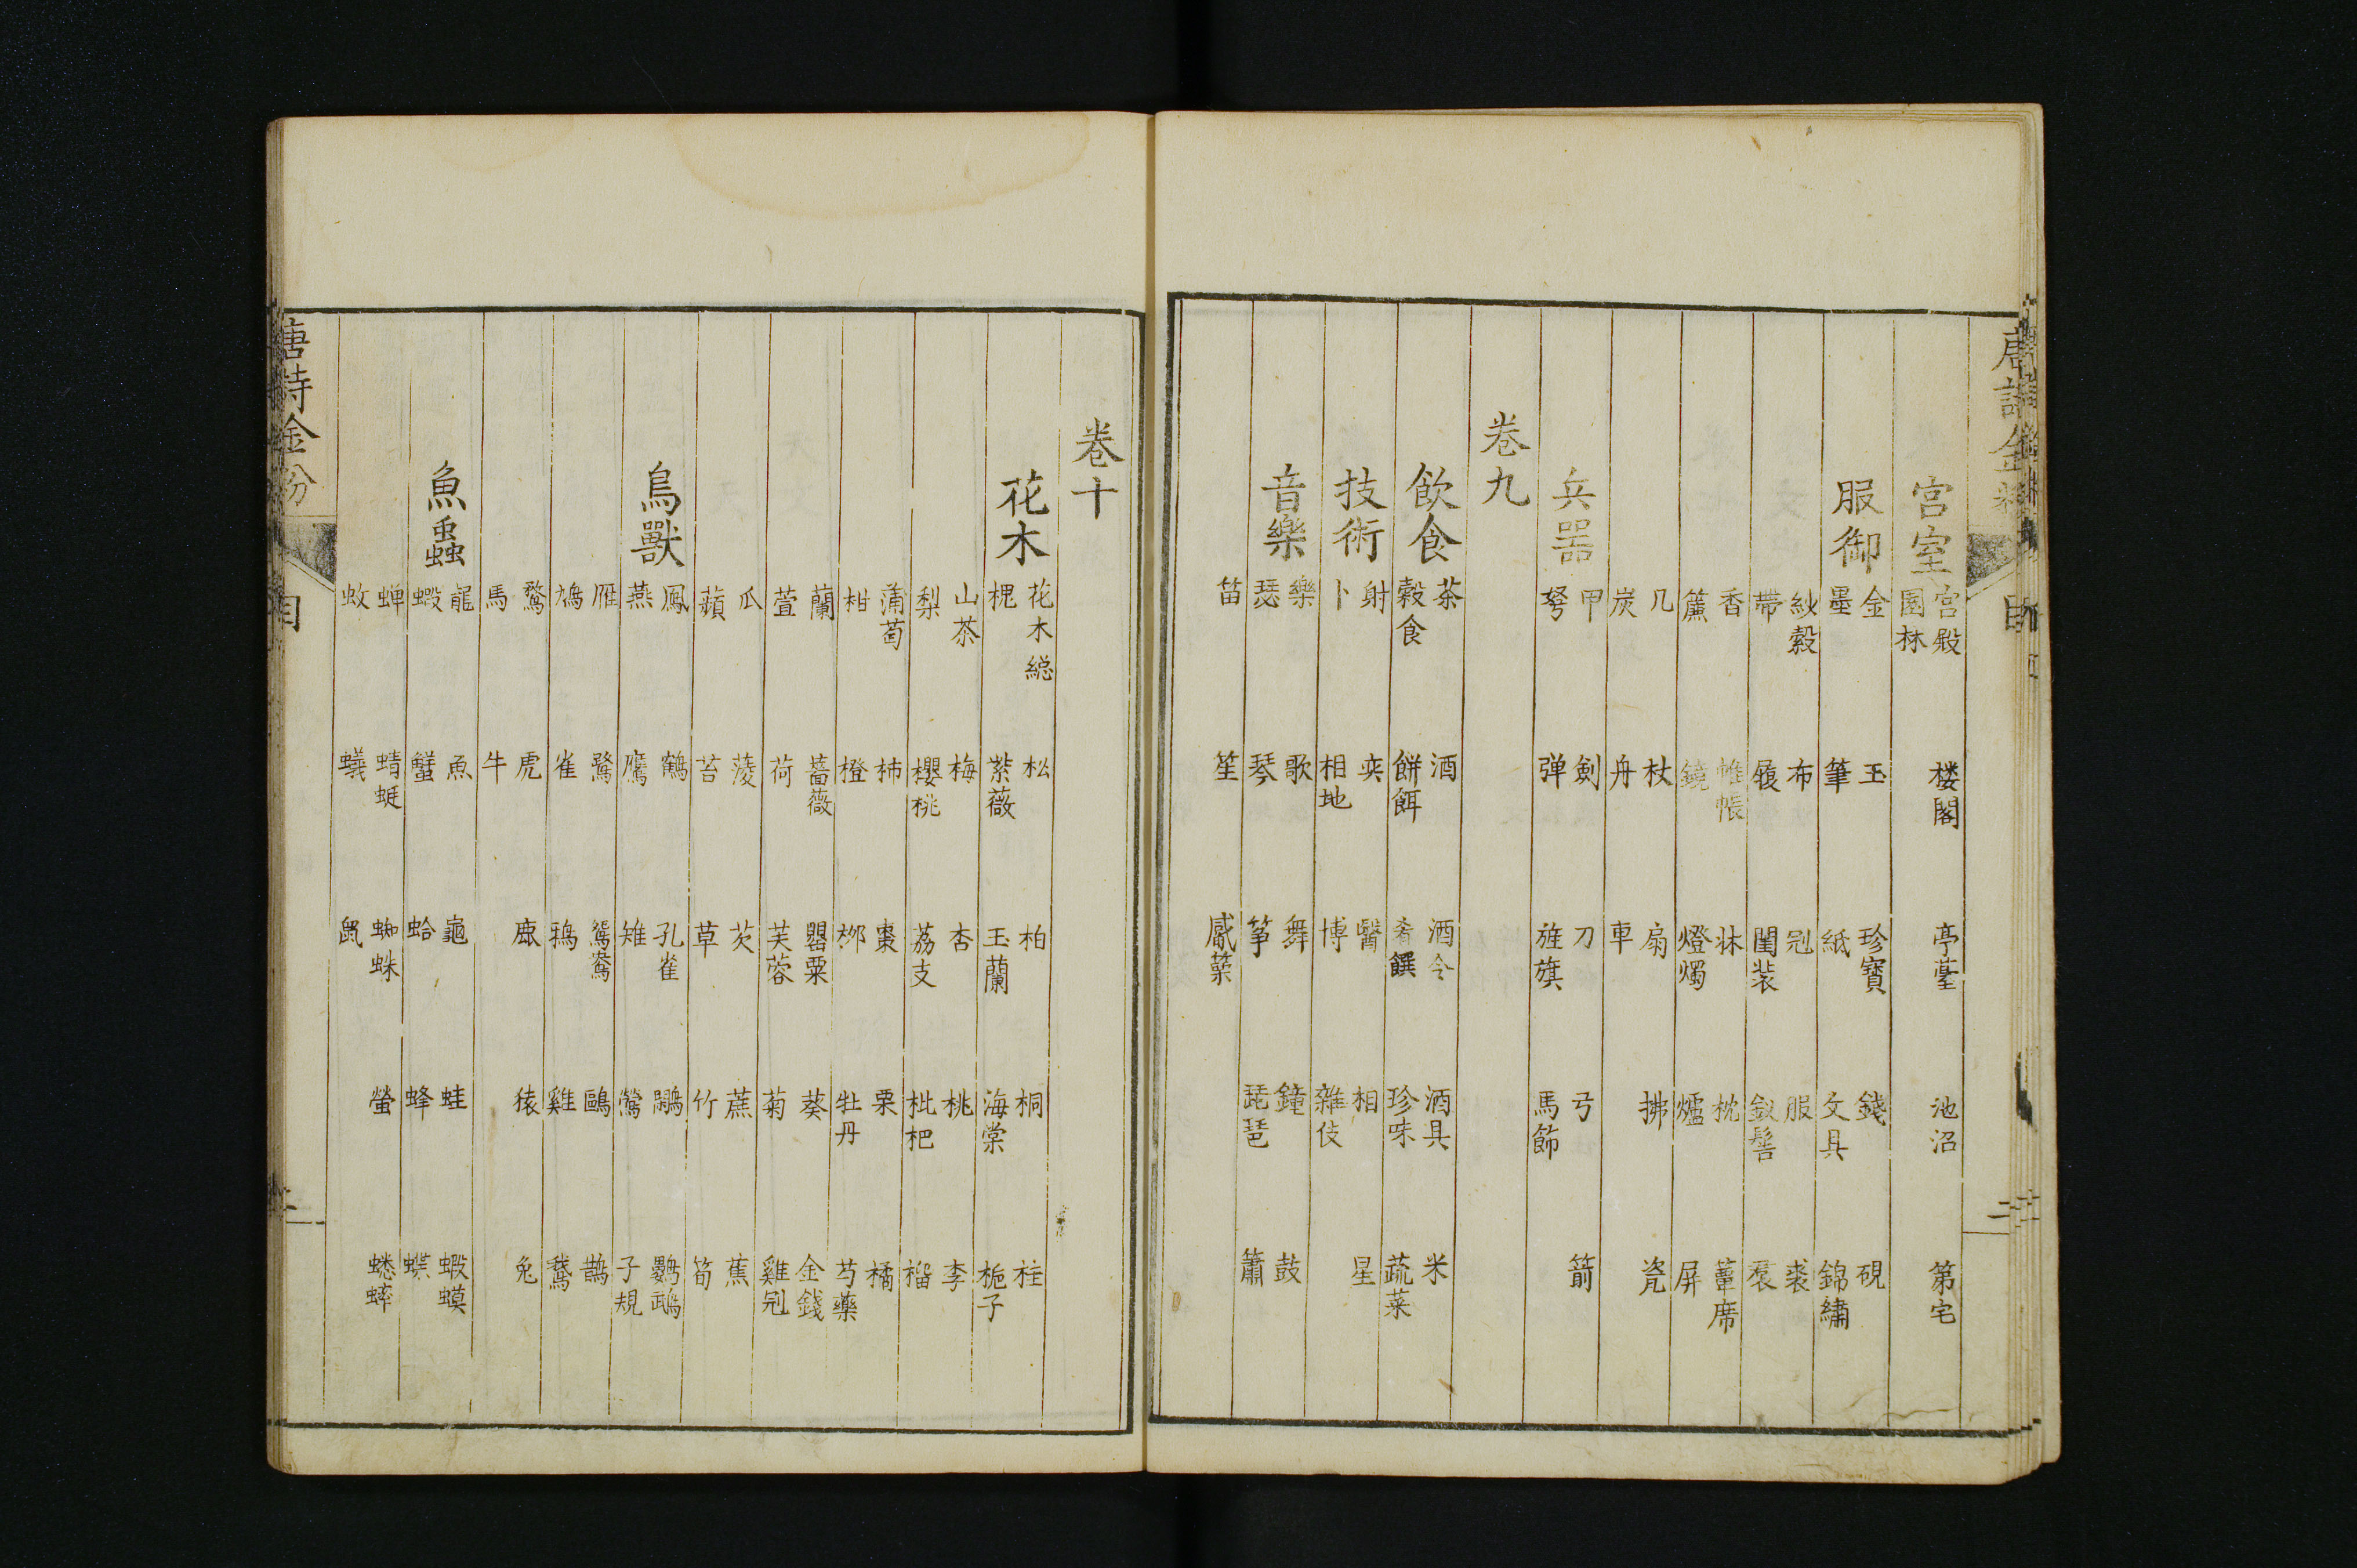 宮室
宮殿 楼閣 亭臺 池沼 第宅
園林
服御
金 玉 珍寳 錢 硯
墨 筆 紙 文具 錦繡
紗縠 布 冠 服 裘
帶 履 閨裝 釵髻 裠
香 帷帳 牀 枕 簟席
簾 鏡 燈燭 爐 屏
几 杖 扇 拂 瓷
炭 舟 車
兵器
甲 劍 刀 弓 箭
弩 弹 旌旗 馬飾
卷九
飲食
茶 酒 酒令 酒具 米
穀食 餅餌 肴饌 珍味 蔬菜
技術
射 奕 醫 相 星
卜 相地 博 雜伎
音樂
樂 歌 舞 鐘 鼓
瑟 琴 筝 琵琶 簫
笛 笙 觱篥
卷十
花木
花木総 松 柏 桐 桂
槐 紫薇 玉蘭 海棠 梔子
山茶 梅 杏 桃 李
梨 櫻桃 荔支 枇杷 榴
蒲萄 柿 棗 栗 橘
柑 橙 梛 牡丹 芍藥
蘭 薔薇 罌粟 葵 金錢
萱 荷 芙蓉 菊 雞冠
瓜 菱 芡 蔗 蕉
蘋 苔 草 竹 筍
鳥獸
鳳 鶴 孔雀 鵰 鸚鵡
燕 鷹 雉 鶯 子規
雁 鷺 鴛鴦 鷗 鵲
鳩 雀 鴉 雞 鵞
鶩 虎 鹿 猿 兔
馬 牛
魚蟲
龍 魚 龜 蛙 蝦蟆
蝦 蟹 蛤 蜂 蝶
蝉 蜻蜓 蜘蛛 螢 蟋蟀
蚊 蟻 鼠
唐詩金粉
目